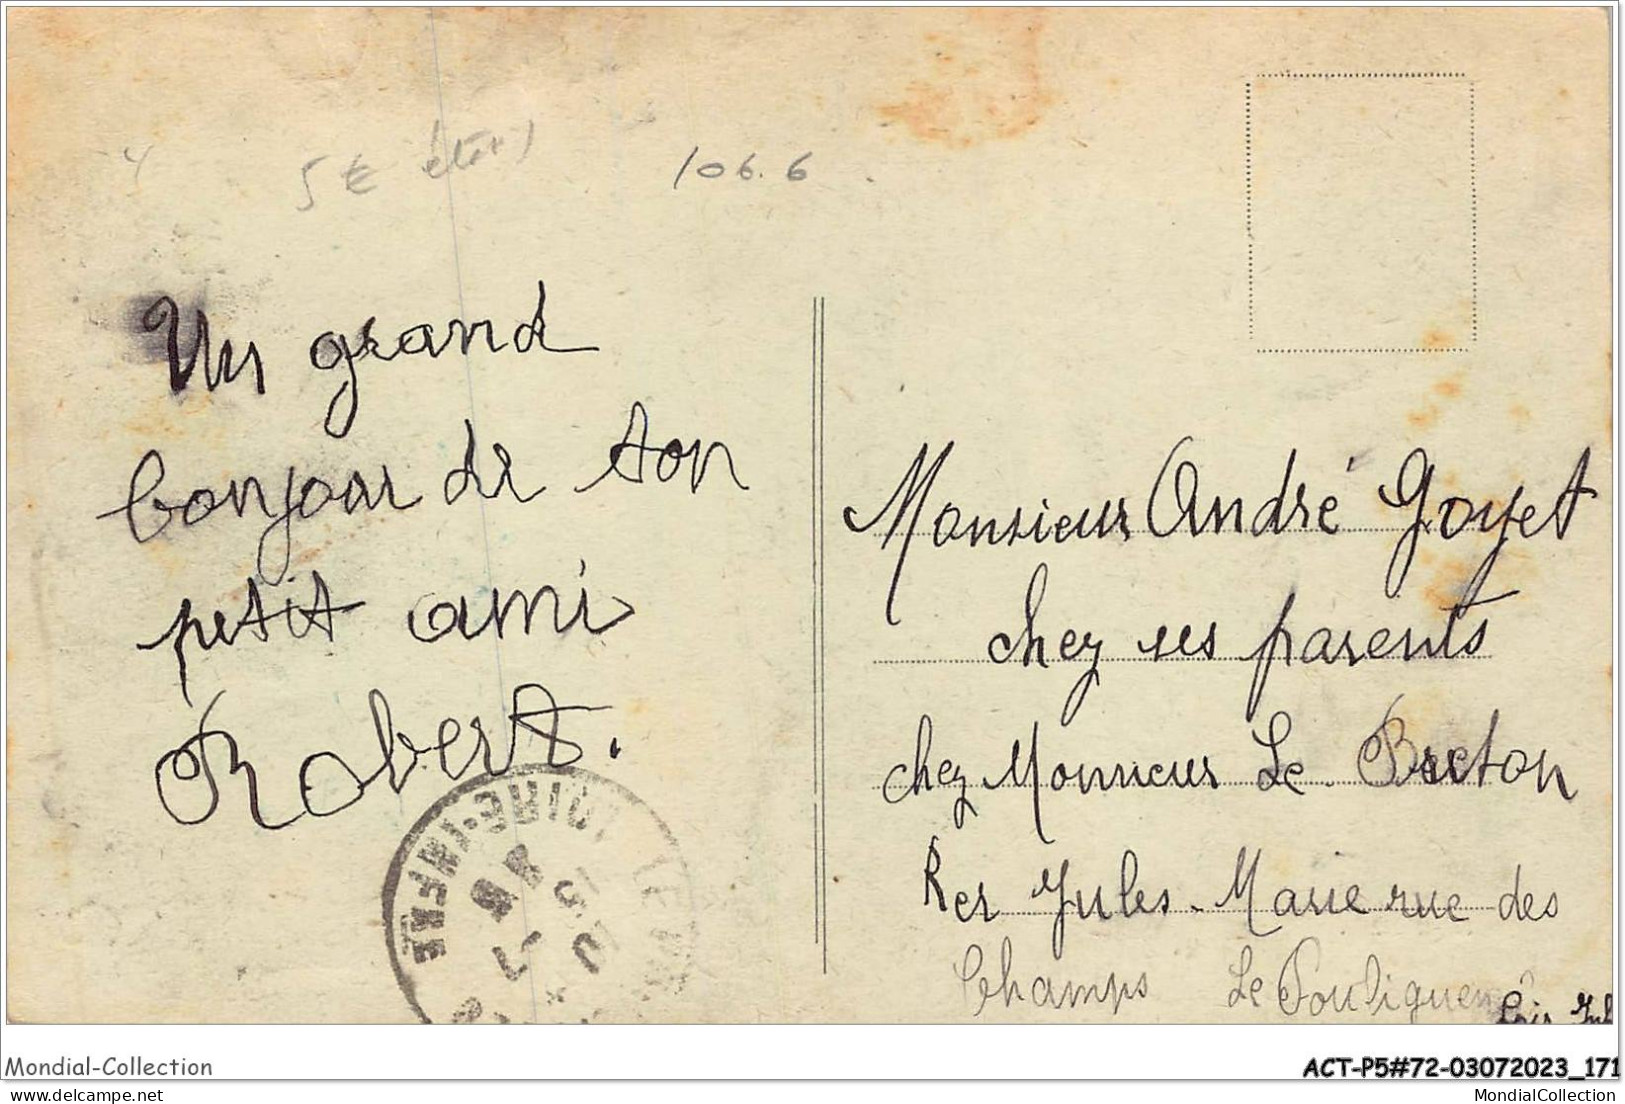 5 € état)
106.6
Un grand
bonjour de ton
petit ami
Robert.
Monsieur André Goyet
chez ses parents
chez Monsieur Le Breton
Ker Jules-Marie rue des
Champs Le Pouliguen
Loir Inf
LOIRE-INFRE
Mondial-Collection
ACT-P5#72-03072023_171
delcampe.net
MondialCollection